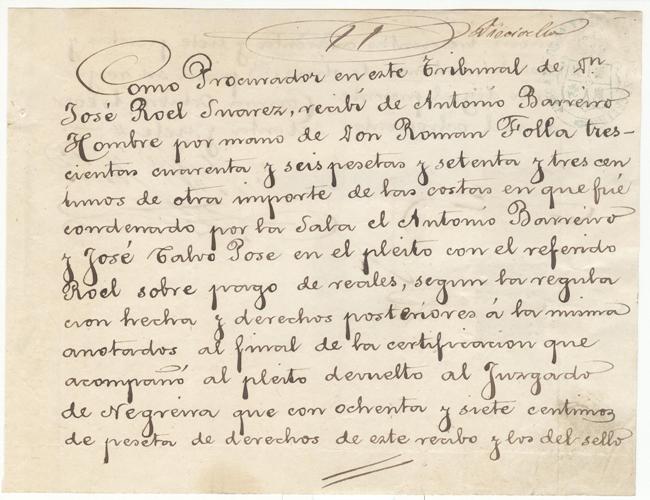 11 Dieciocho
Como Procurador en este Tribunal de Dn
José Roel Suarez, recibi de Antonio Barreiro
Hombre por mano de Don Roman Folla tres-
cientas cuarenta y seis pesetas y setenta y tres cen
timos de otra importe de las costas en que fué
condenado por la Sala el Antonio Barreiro
y José Calvo Pose en el pleito con el referido
Roel sobre pago de reales, segun la regula
cion hecha y derechos posteriores á la misma
anotados al final de la certificacion que
acompañó al pleito devuelto al Juzgado
de Negreira que con ochenta y siete centimos
de peseta de derechos de este recibo y los del sello